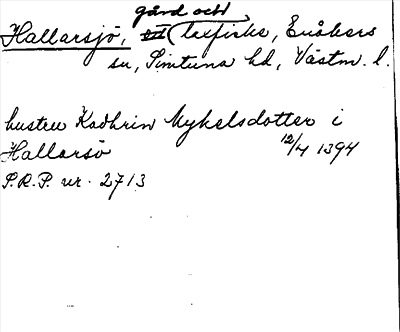 gård och
Hallarsjö, (laxfiske, Enåkers
sn, Simtuna hd, Västm. l.
hustru Kadhrin Mykelsdotter i
Hallarsö 12/4 1394
S.R.P. nr. 2713